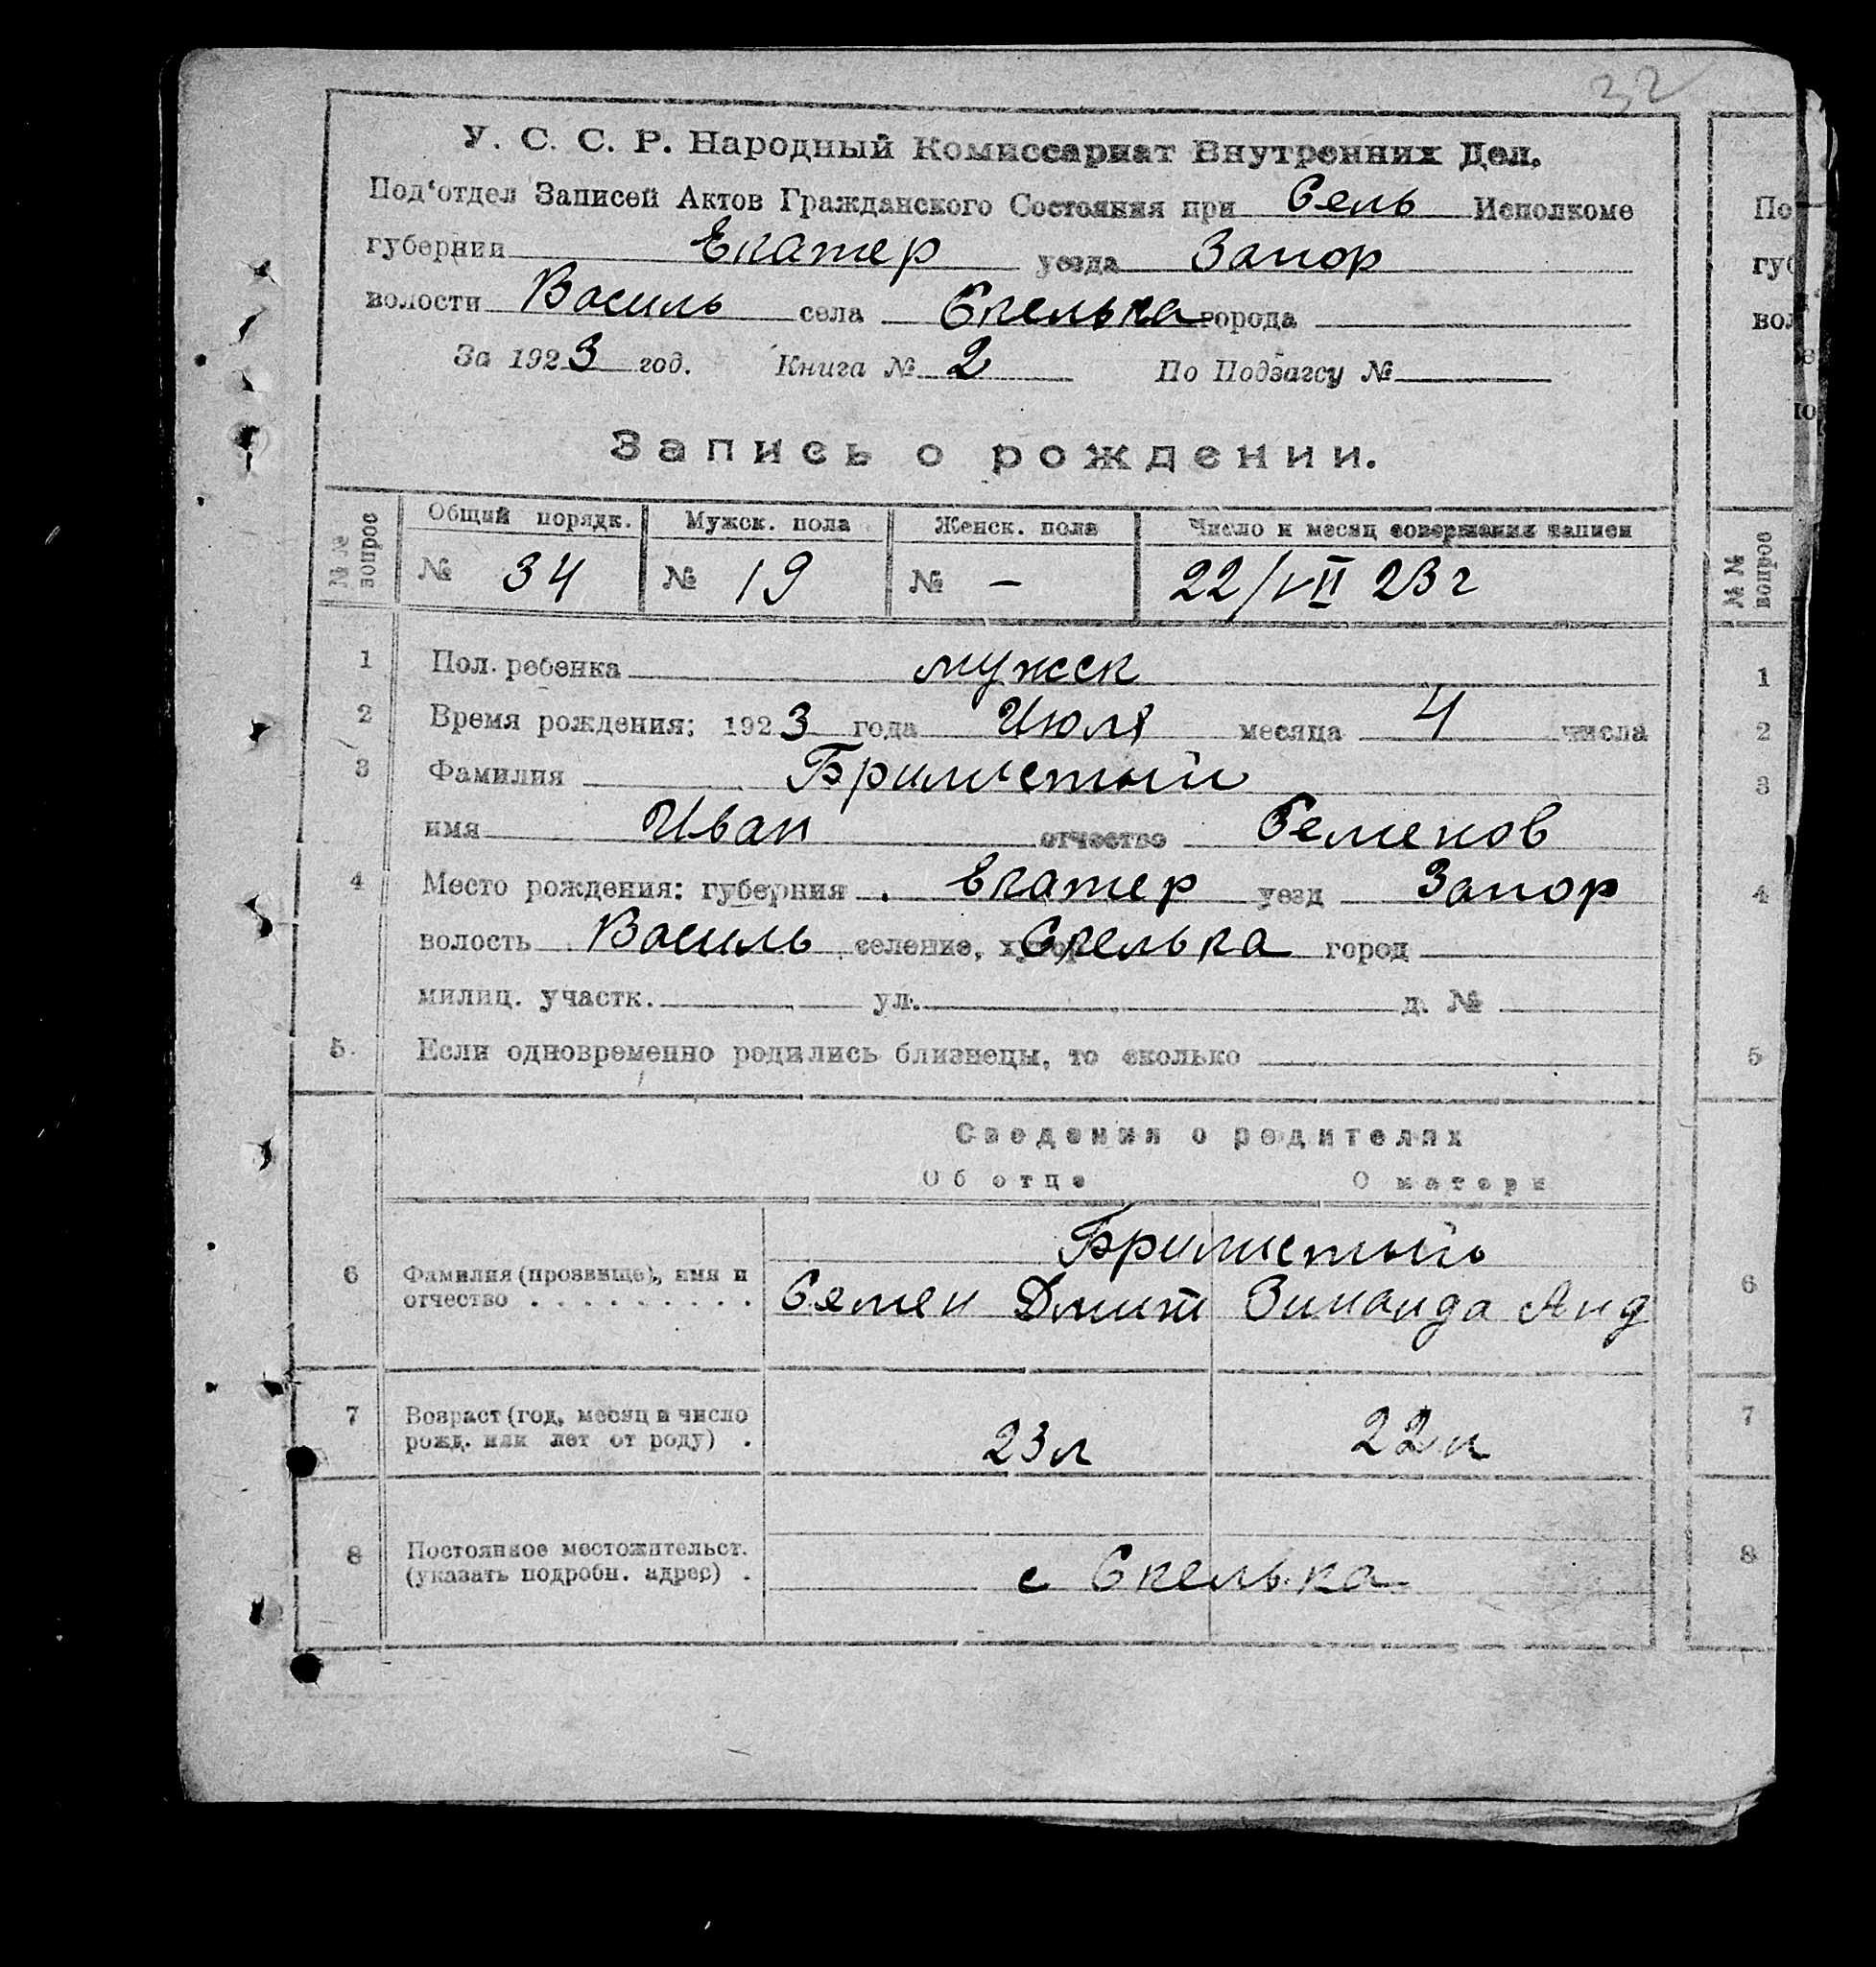 32
У. С. С. Р. Народный Комиссариат Внутренних Дел.
Под'отдел Записей Актов Гражданского Состояния при Сель Исполкоме
губернии Екатер уезда Запор
волости Василь села Скелька города
За 1923 год. Книга № 2 По Подзагсу №
Запись о рождении.
№№ вопрос Общий порядк. Мужск. пола Женск. пола Число и месяц совершения записи
№ 34 № 19 № - 22/VII 23 г
1 Пол. ребенка мужск
2 Время рождения: 1923 года Июля месяца 4 числа
3 Фамилия Бримистый
имя Иван отчество Семенов
4 Место рождения: губерния Екатер уезд Запор
волость Василь селение, хутор Скелька город
милиц. участк. ул. д. №
5. Если одновременно родились близнецы, то сколько
Сведения о родителях
Об отце О матери
Бримистый
6 Фамилия (прозвище), имя и
отчество . . . . . . . . . Семен Дмит Зинаида Анд
7 Возраст (год, месяц и число
рожд. или лет от роду) . 23 л 22 л
8 Постоянное местожительст.
(указать подробн. адрес) . с Скелька
По
губ
вол
№№ вопрос
1
2
3
4
5
6
7
8